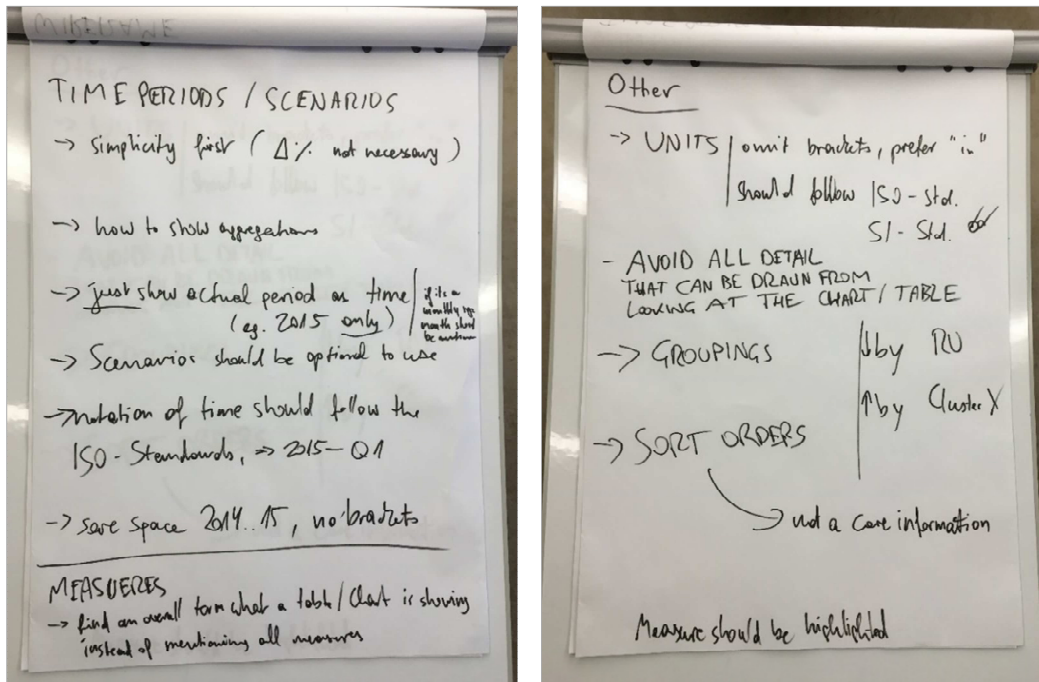 TIME PERIODS / SCENARIOS
-> Simplicity first ( Δ% not necessary )
-> how to show aggregations
-> just show actual period on time
(eg. 2015 only)
if its a
monthly
month should
be
-> Scenarios should be optional to use
-> notation of time should follow the
ISO-Standards, => 2015-Q1
-> save space 2014..15, no brackets
MEASUERES
-> find an overall term what a table / Chart is showing
instead of mentioning all measures
Other
-> UNITS | omit brackets, prefer "in"
should follow ISO-Std.
SI-Std.
- AVOID ALL DETAIL
THAT CAN BE DRAWN FROM
LOOKING AT THE CHART / TABLE
-> GROUPINGS
↓by RU
↑by Cluster X
-> SORT ORDERS
-> not a core information
Measure should be highlighted